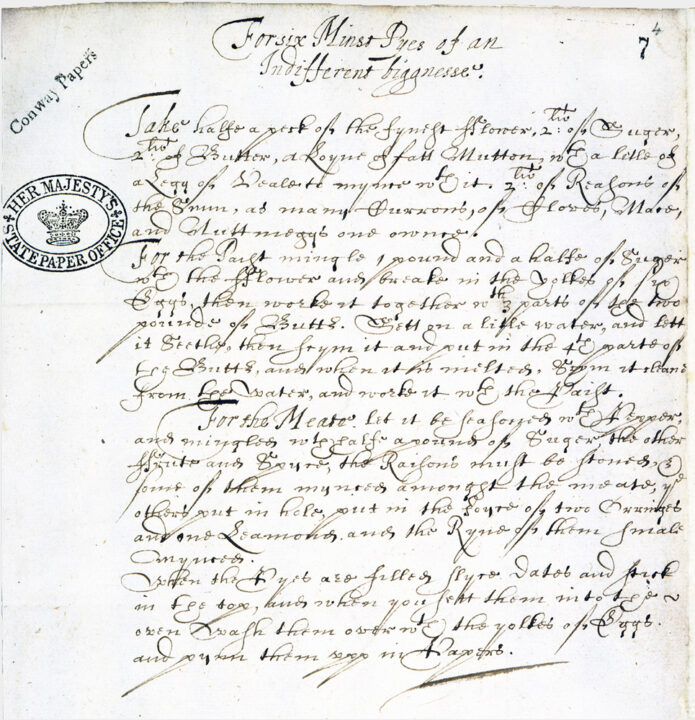 For six Minst Pyes of an
Indifferent biggnesse.
7 4
Conway Papers
HER MAJESTY'S
STATE PAPER OFFICE
Take halfe a peck of the fynest fflower, 2li: of Suger,
2li: of Butter, a Loyne of fatt Mutton, wth a litle of
a Legg of Veale to mynce wth it. 2li: of Reasons of
the Sunn, as many Currons, of Cloves, Mace,
and Nuttmeggs one ownce.
For the Paist mingle 1 pound and a halfe of Suger
wth the fflower and breake in the yolkes of six
Eggs, then worke it together wth 3 parts of the two
pounds of Butter. Sett on a litle water, and lett
it Seethe, then scym it and put in the 4th parte of
the Butter, and when it is melted, Scym it cleane
from the water, and worke it wth the Paist.
For the Meate let it be seasoned wth Pepper,
and mingled wth halfe a pound of Suger the other
ffrute and Spyce, the Raisons must be stoned, &
some of them mynced amongst the meate, ye
others put in hole, put in the Joyce of two Orringes
and one Leamond, and the Ryne of them smale
mynced.
When the Pyes are filled slyce dates and stick
in the top, and when you sett them into the
oven Wash them over wth the yolkes of Eggs,
and pynn them upp in Papers.